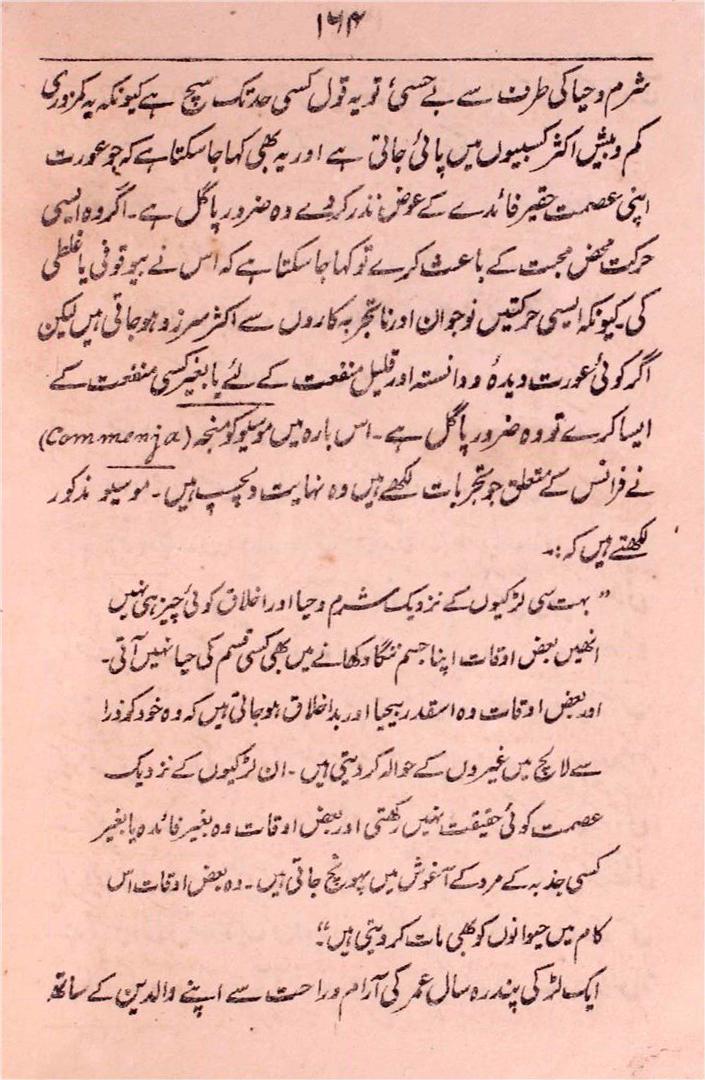 ۱۶۴
شرم و حیا کی طرف سے بے حسی ٔ تو یہ قول کسی حد تک سچ ہے کیونکہ یہ کمزوری
کم و بیش اکثر کسبیوں میں پائی جاتی ہے اور یہ بھی کہا جا سکتا ہے کہ جو عورت
اپنی عصمت حقیر فائدے کے عوض نذر کردے وہ ضرور پاگل ہے۔ اگر وہ ایسی
حرکت محض محبت کے باعث کرے تو کہا جا سکتا ہے کہ اس نے بیوقوفی یا غلطی
کی۔ کیونکہ ایسی حرکتیں نوجوان اور ناتجربہ کاروں سے اکثر سرزد ہو جاتی ہیں لیکن
اگر کوئی عورت دیدۂ و دانستہ اور قلیل منفعت کے لئے یا بغیر کسی منفعت کے
ایسا کرے تو وہ ضرور پاگل ہے۔ اس بارہ میں موسیو کومنجہ (Commenja)
نے فرانس کے متعلق جو تجربات لکھے ہیں وہ نہایت دلچسپ ہیں۔ موسیو مذکور
لکھتے ہیں کہ:۔
” بہت سی لڑکیوں کے نزدیک شرم و حیا اور اخلاق کوئی چیز ہی نہیں
انھیں بعض اوقات اپنا جسم ننگا دکھانے میں بھی کسی قسم کی حیا نہیں آتی۔
اور بعض اوقات وہ اسقدر بیحیا اور بداخلاق ہو جاتی ہیں کہ وہ خود کو ذرا
سے لالچ میں غیروں کے حوالہ کر دیتی ہیں۔ ان لڑکیوں کے نزدیک
عصمت کوئی حقیقت نہیں رکھتی اور بعض اوقات وہ بغیر فائدہ یا بغیر
کسی جذبہ کے مرد کے آغوش میں پہونچ جاتی ہیں۔ وہ بعض اوقات اس
کام میں حیوانوں کو بھی مات کر دیتی ہیں“
ایک لڑکی پندرہ سال عمر کی آرام و راحت سے اپنے والدین کے ساتھ